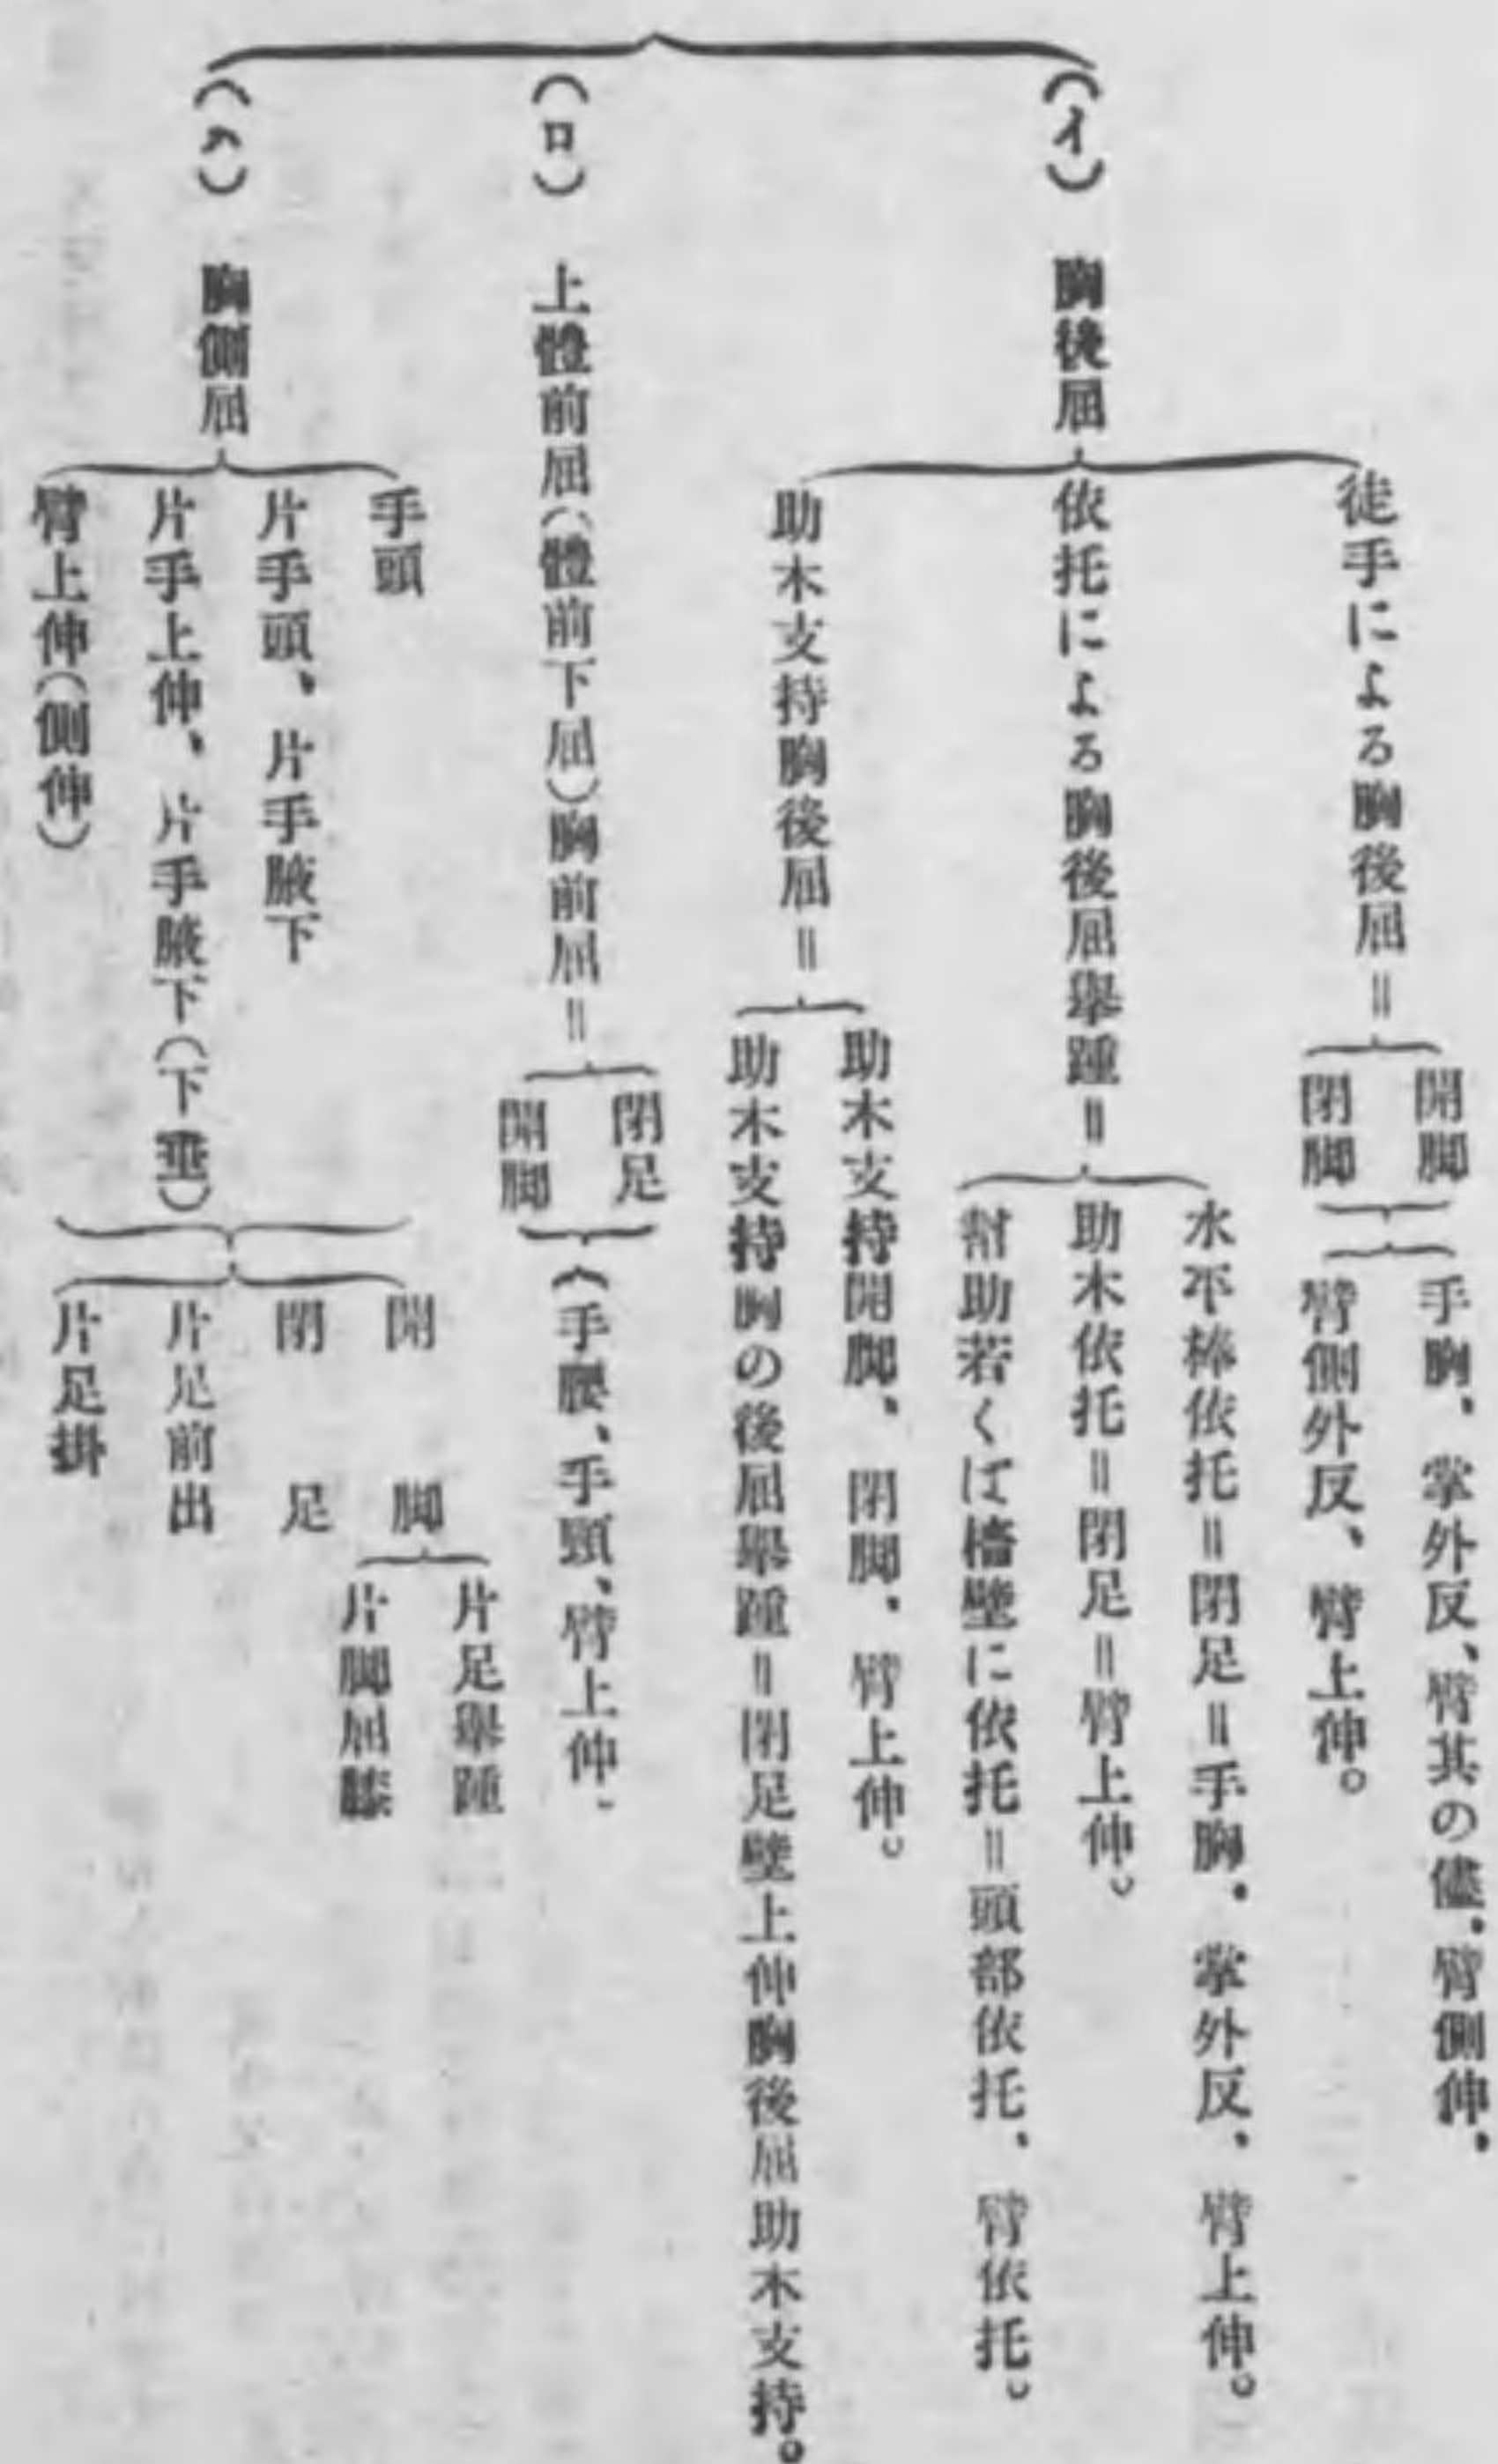 (イ) 胸後屈
徒手による胸後屈=
開脚
閉脚
手胸、掌外反、臂其の儘、臂側伸、
臂側外反、臂上伸。
依托による胸後屈擧踵=
水平棒依托=閉足=手胸、掌外反、臂上伸。
助木依托=閉足=臂上伸。
幇助若くば墻壁に依托=頭部依托、臂依托。
助木支持胸後屈=
助木支持開脚、閉脚、臂上伸。
助木支持胸の後屈擧踵=閉足壁上伸胸後屈助木支持。
(ロ) 上體前屈(體前下屈)胸前屈=
閉足
開脚
(手腰、手頸、臂上伸、
(ハ) 胸側屈
手頭
片手頭、片手腋下
片手上伸、片手腋下(下垂)
臂上伸(側伸)
開脚
片足擧踵
片脚屈膝
閉足
片足前出
片足掛